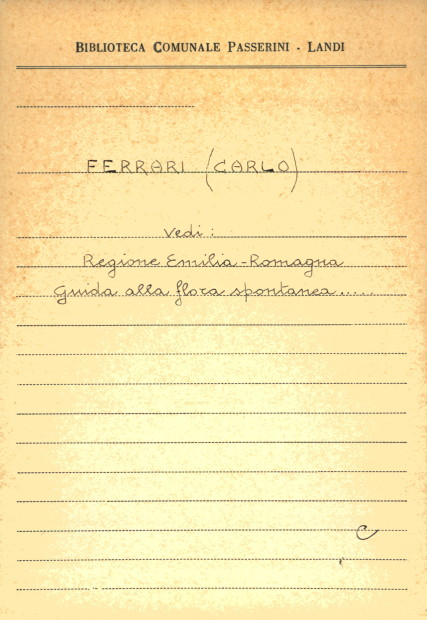 BIBLIOTECA COMUNALE PASSERINI - LANDI
FERRARI (CARLO)
Vedi:
Regione Emilia-Romagna
Guida alla flora spontanea.....
C